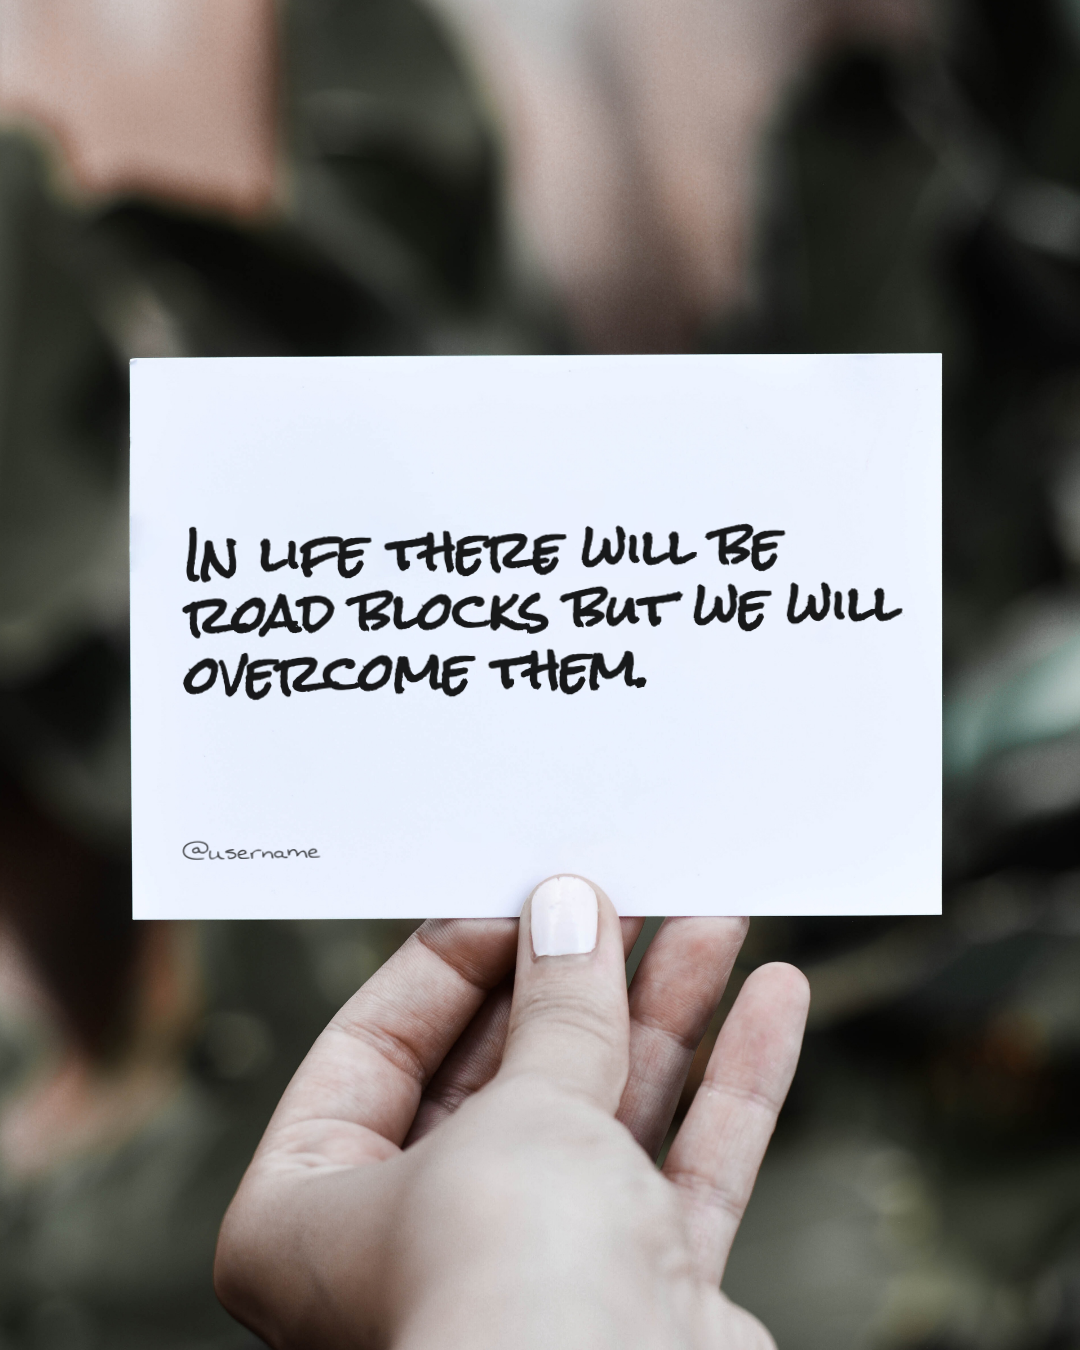 In life there will be
road blocks but we will
overcome them.
@username